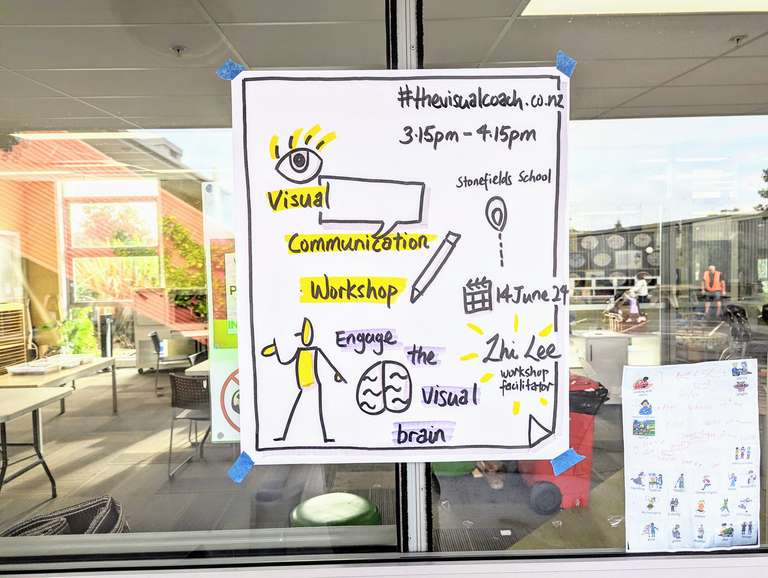 #thevisualcoach.co.nz
3.15pm - 4.15pm
Stonefields School
Visual
Communication
Workshop
14 June 24
Zhi Lee
workshop
facilitator
Engage
the
Visual
brain